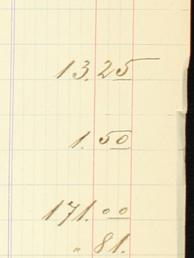 13.25
1.50
171.00
" 81.